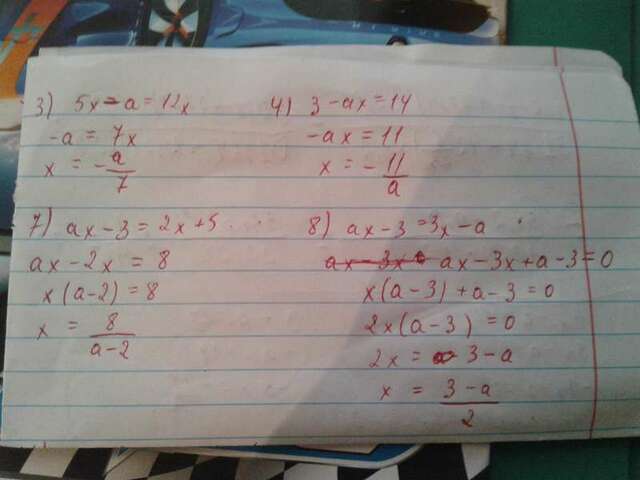 3) 5x-a=12x
-a=7x
x = -a/7
4) 3-ax=14
-ax=11
x = -11/a
7) ax-3=2x+5.
ax-2x=8
x(a-2)=8
x = 8/a-2
8) ax-3=3x-a
ax-3x+a-3=0
x(a-3)+a-3=0
2x(a-3)=0
2x=3-a
x = 3-a/2